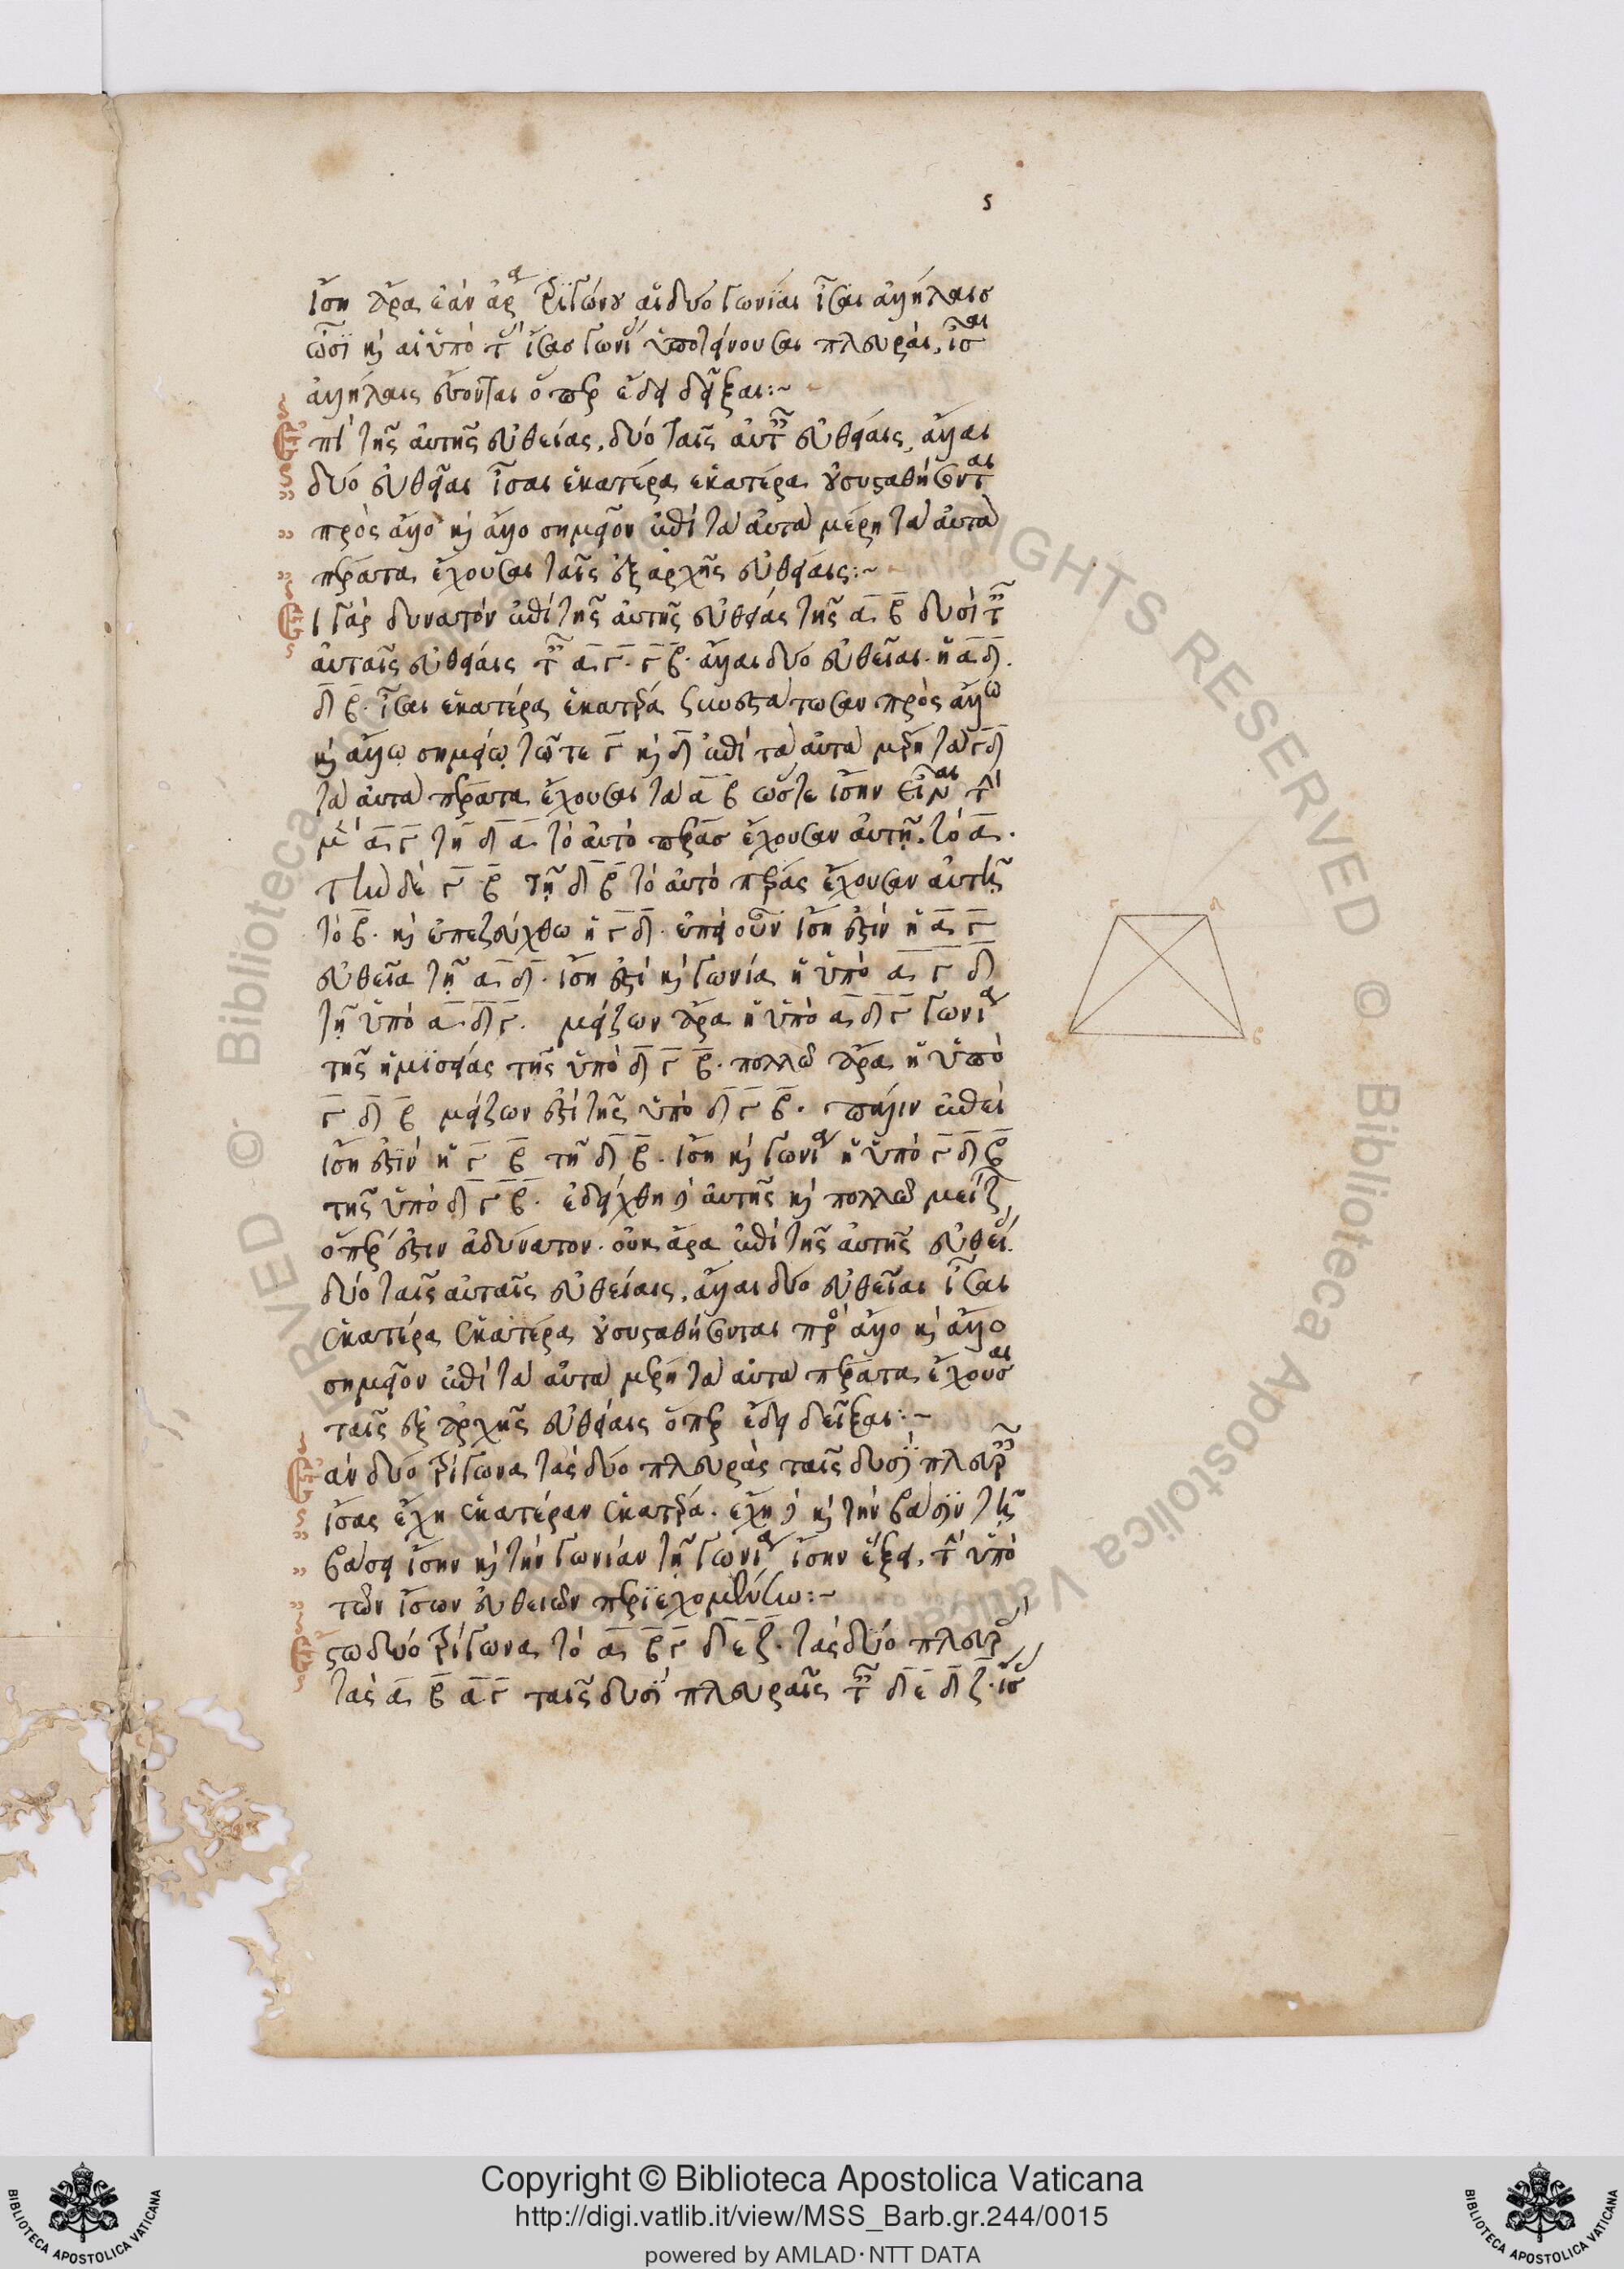 5
ἴση ἄρα ἐὰν ἄρα τριγώνου αἱ δύο γωνίαι ἴσαι ἀλλήλαις
ὦσι καὶ αἱ ὑπὸ τὰς ἴσας γωνίας ὑποτείνουσαι πλευραὶ, ἴσαι
ἀλλήλαις ἔσονται ὅπερ ἔδει δεῖξαι:~
Ἐπὶ τῆς αὐτῆς εὐθείας, δύο ταῖς αὐταῖς εὐθείαις, ἄλλαι
δύο εὐθεῖαι ἴσαι ἑκατέρα ἑκατέρα οὐ συσταθήσονται
πρὸς ἄλλο καὶ ἄλλο σημεῖον ἐπὶ τὰ αὐτὰ μέρη τὰ αὐτὰ
πέρατα ἔχουσαι ταῖς ἐξ ἀρχῆς εὐθείαις:~
Εἰ γὰρ δυνατόν ἐπὶ τῆς αὐτῆς εὐθείας τῆς α β δυσὶ ταῖς
αὐταῖς εὐθείαις ταῖς α γ. γ β. ἄλλαι δύο εὐθεῖαι. ἡ α δ.
δ β. ἴσαι ἑκατέρα ἑκατέρα συνεστάτωσαν πρὸς ἄλλω
καὶ ἄλλω σημείω τῶ τε γ καὶ δ ἐπὶ τὰ αὐτὰ μέρη τὰ γ δ
τὰ αὐτὰ πέρατα ἔχουσαι τὰ α β ὥστε ἴσην εἶναι τὴν
μὲν α γ τῆ δ α τὸ αὐτὸ πέρας ἔχουσαν αὐτῆ, τὸ α.
τὴν δὲ γ β τῆ δ β τὸ αὐτὸ πέρας ἔχουσαν αὐτῆ
τὸ β. καὶ ἐπεζεύχθω ἡ γ δ. ἐπεὶ οὖν ἴση ἐστὶν ἡ α γ
εὐθεῖα τῆ α δ. ἴση ἐστὶ καὶ γωνία ἡ ὑπὸ α γ δ
τῆ ὑπὸ α δ γ. μείζων ἄρα ἡ ὑπὸ α δ γ γωνία
τῆς ἡμισείας τῆς ὑπὸ δ γ β. πολλῶ ἄρα ἡ ὑπὸ
γ δ β μείζων ἐστὶ τῆς ὑπὸ δ γ β. πάλιν ἐπεὶ
ἴση ἐστὶν ἡ γ β τῆ δ β. ἴση καὶ γωνία ἡ ὑπὸ γ δ β
τῆς ὑπὸ δ γ β. ἐδείχθη δὲ αὐτῆς καὶ πολλῶ μείζων
ὅπερ ἐστὶν ἀδύνατον. οὐκ ἄρα ἐπὶ τῆς αὐτῆς εὐθείας
δύο ταῖς αὐταῖς εὐθείαις, ἄλλαι δύο εὐθεῖαι ἴσαι
ἑκατέρα ἑκατέρα οὐ συσταθήσονται πρὸς ἄλλο καὶ ἄλλο
σημεῖον ἐπὶ τὰ αὐτὰ μέρη τὰ αὐτὰ πέρατα ἔχουσαι
ταῖς ἐξ ἀρχῆς εὐθείαις ὅπερ ἔδει δεῖξαι:~
Ἐὰν δύο τρίγωνα τὰς δύο πλευρὰς ταῖς δυσὶ πλευραῖς
ἴσας ἔχη ἑκατέραν ἑκατέρα. ἔχη δὲ καὶ τὴν βάσιν τῆ
βάσει ἴσην καὶ τὴν γωνίαν τῆ γωνία ἴσην ἕξει, τὴν ὑπὸ
τῶν ἴσων εὐθειῶν περιεχομένην:~
Ἔστω δύο τρίγωνα τὸ α β γ δ ε ζ. τὰς δύο πλευρὰς
τὰς α β α γ ταῖς δυσὶ πλευραῖς ταῖς δ ε δ ζ. ἴσας
γ δ
α β
© Biblioteca Apostolica Vaticana
RIGHTS RESERVED
Copyright © Biblioteca Apostolica Vaticana
http://digi.vatlib.it/view/MSS_Barb.gr.244/0015
powered by AMLAD·NTT DATA
BIBLIOTECA APOSTOLICA VATICANA
BIBLIOTECA APOSTOLICA VATICANA